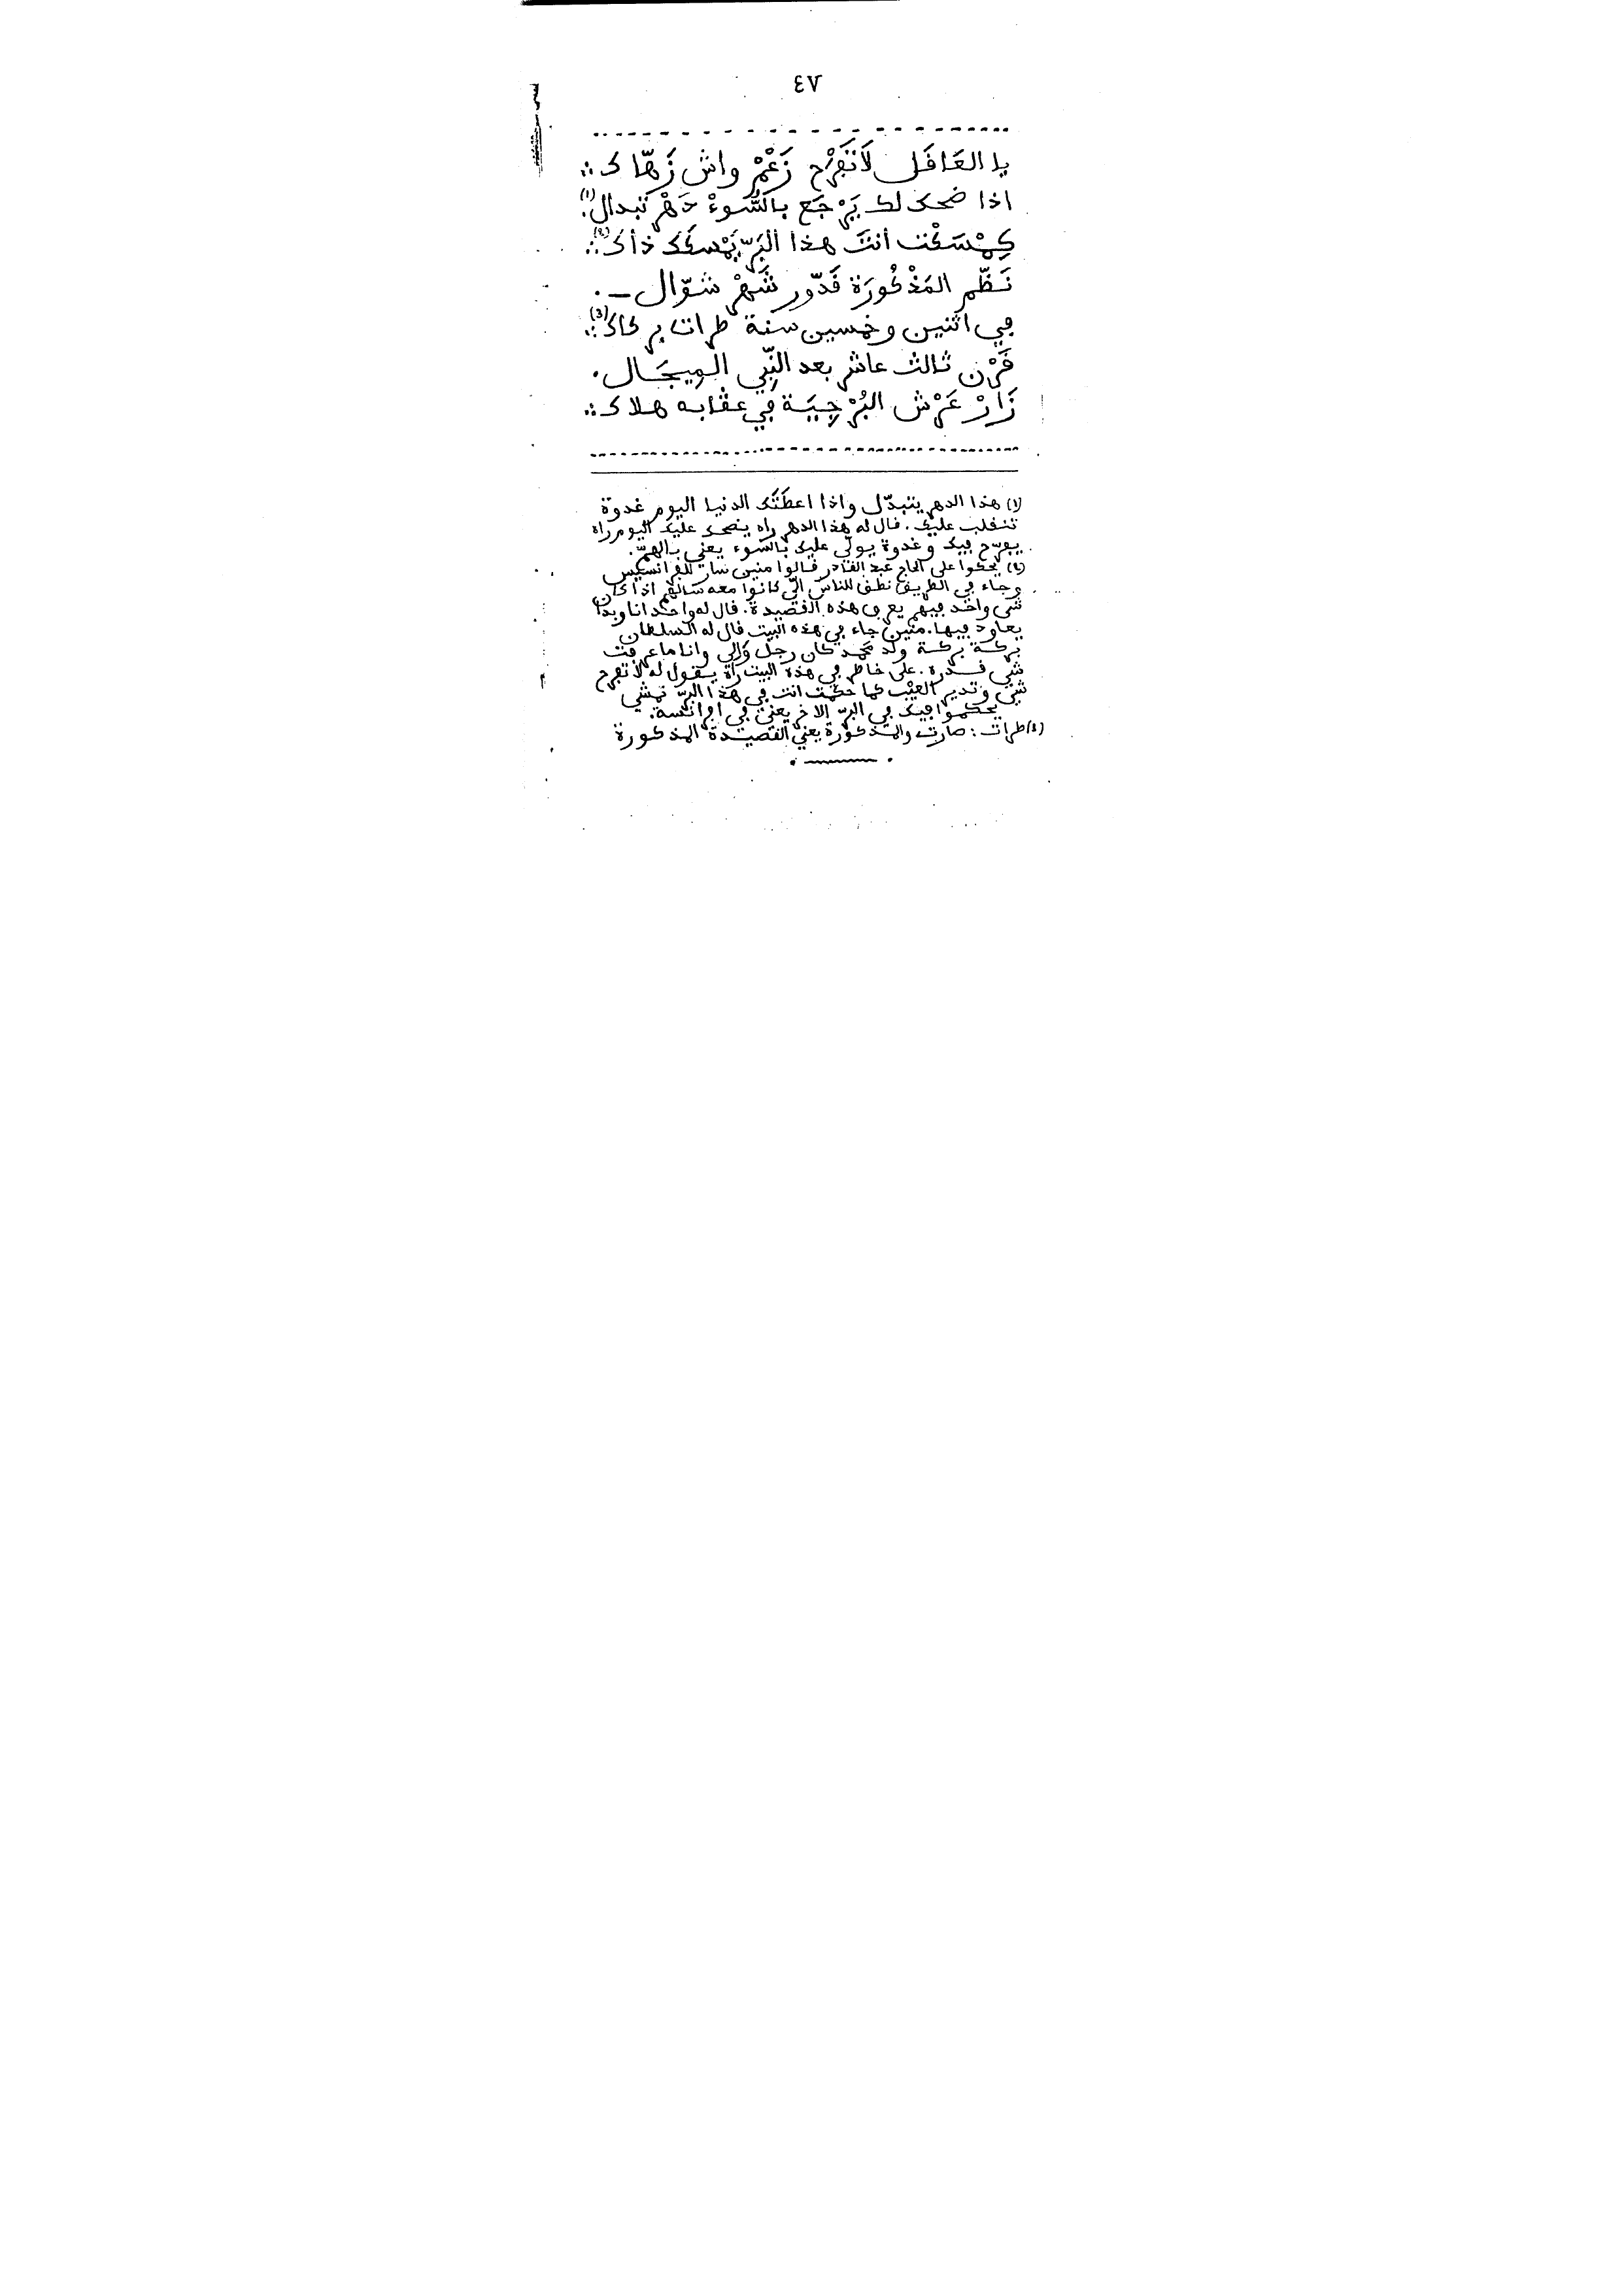 ٤٧
يا العَافَل لَا تَفْرَح زَعْمْ واش زَهّاك ∴
اذا ضحك لك يَرْجَع بالسُّوءْ دَهْر تبدال (١)
كِمْسَكْت أنتَ هذا البَرّ يَمْسكَك ذاك (٢) ∴
نَظّم المَذْكُورَة فَدّور شَهْر شوّال ـ .
في اثنين وخمسين سنة طرات بر كاك (3) ∴
قَرْن ثالث عاشر بعد النِّبي المِيجَال .
زَارْ عَرْش البُرْجِيَة في عقابه هلاك ∴
(١) هذا الدهر يتبدّل واذا اعطَتَك الدنيا اليوم غدوة
تنقلب عليك . قال له هذا الدهر راه يضحك عليك اليوم راه
يفرّح فيك وغدوة يولّي عليك بالسّوء يعني بالهمّ .
(٢) يحكوا على الحاج عبد القادر قالوا منين سار للفرانسيس
وجاء في الطريق نطق للناس الّي كانوا معه سالهم اذا كان
شي واحد فيهم يعرف هذه القصيدة . قال له واحد انا وبدا
يعاود فيها . منين جاء في هذه البيت قال له السلطان
بركة بركة ولد محمد كان رجل والي وانا ما عرفت
شي قدره . على خاطر في هذه البيت راه يقول له لا تفرح
شي وتدير العيب كما حكمت انت في هذا البرّ تمشي
يحكموا فيك في البرّ الاخر يعني في افرانسة .
(٤) طرات : صارت والمذكورة يعني القصيدة المذكورة